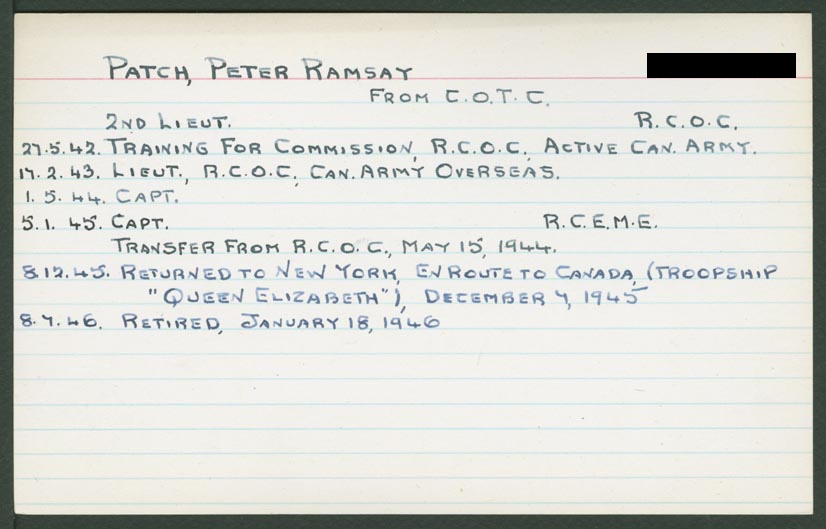 PATCH, PETER RAMSAY
FROM C.O.T.C.
2ND LIEUT. R.C.O.C.
27.5.42. TRAINING FOR COMMISSION, R.C.O.C., ACTIVE CAN. ARMY.
17.2.43. LIEUT., R.C.O.C., CAN. ARMY OVERSEAS.
1.5.44. CAPT.
5.1.45. CAPT. R.C.E.M.E.
TRANSFER FROM R.C.O.C., MAY 15, 1944.
8.12.45. RETURNED TO NEW YORK, EN ROUTE TO CANADA, (TROOPSHIP
"QUEEN ELIZABETH"), DECEMBER 4, 1945
8.7.46. RETIRED, JANUARY 18, 1946